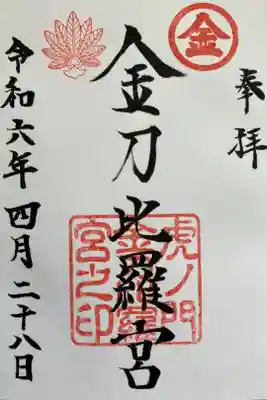 金
奉拝
金刀比羅宮
虎ノ門
宮之印
令和六年四月二十八日